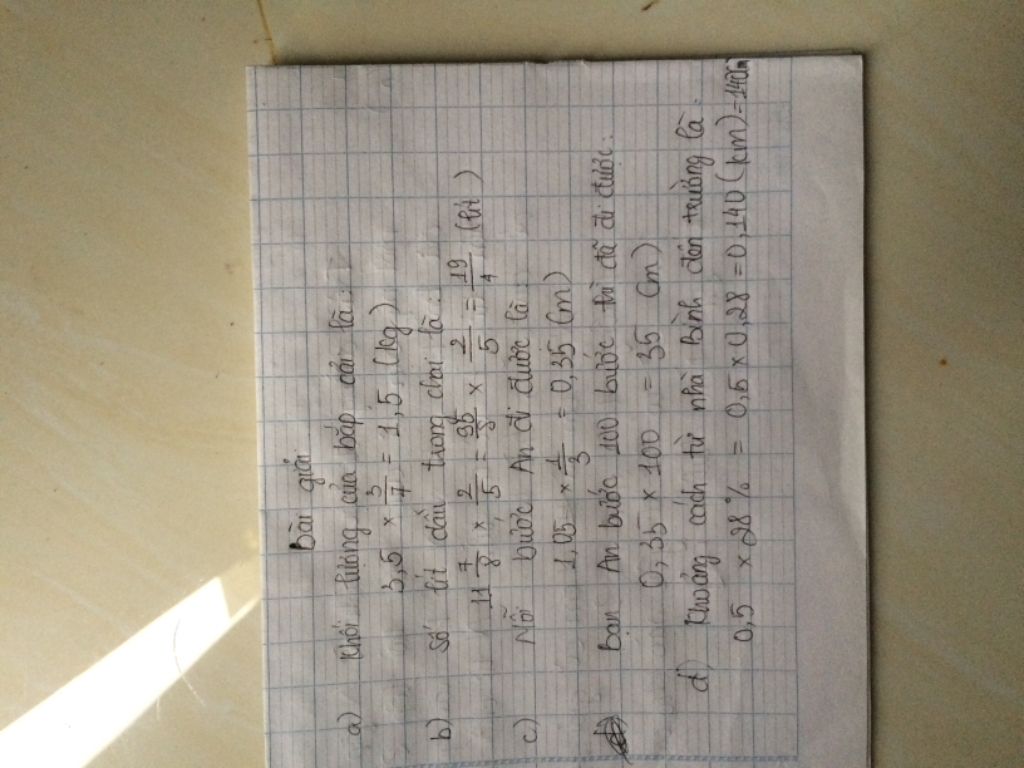 Bài giải
a) Khối lượng của bắp cải là:
3,5 × 3/7 = 1,5 (kg)
b) Số lít dầu trong chai là:
11 7/8 × 2/5 = 95/8 × 2/5 = 19/4 (lít)
c) Mỗi bước An đi được là:
1,05 × 1/3 = 0,35 (m)
Bạn An bước 100 bước thì đã đi được:
0,35 × 100 = 35 (m)
d) Khoảng cách từ nhà bình đến trường là
0,5 × 28% = 0,5 × 0,28 = 0,140 (km) = 140m